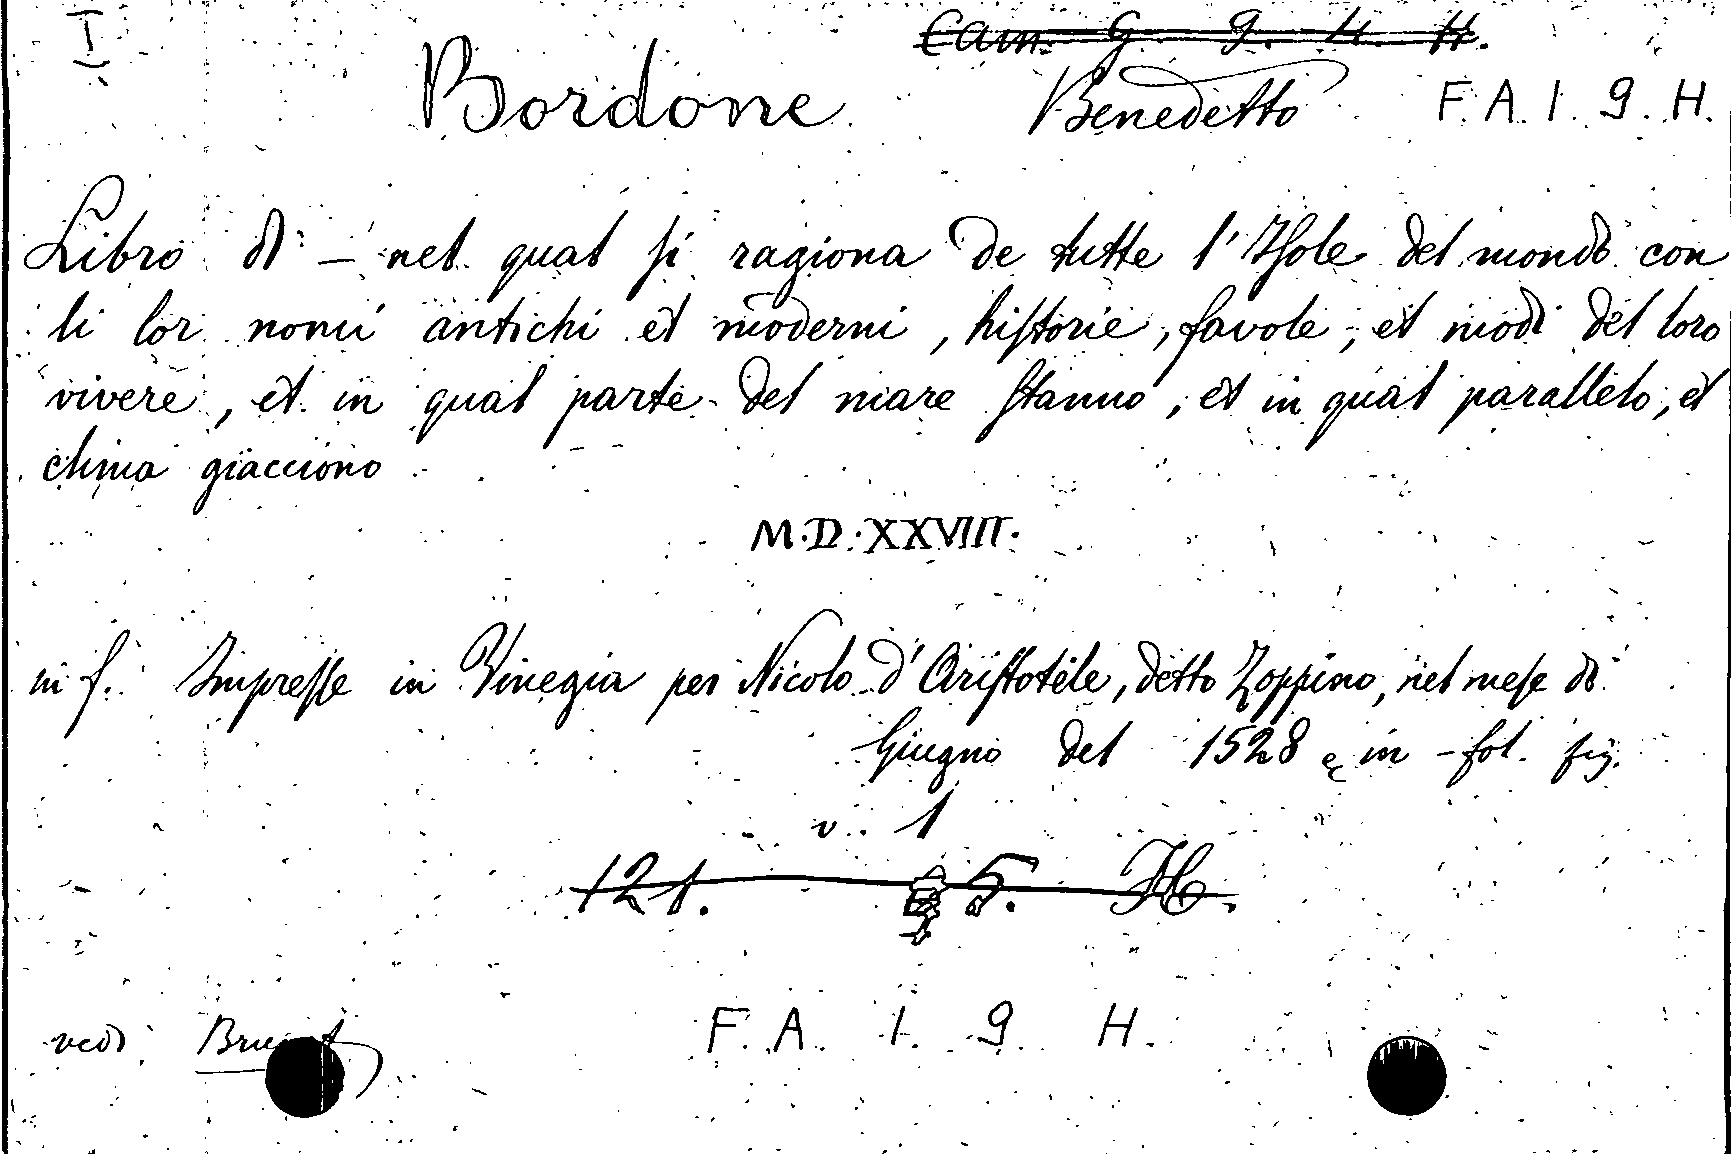 I
Cam. G. 9. H. H.
Bordone Benedetto F. A. I. 9. H.
Libro di — nel qual si ragiona de tutte l'Isole del mondo con
li lor nomi antichi et moderni, historie, favole, et modi del loro
vivere, et in qual parte del mare stanno, et in qual parallelo, et
clima giacciono
M.D.XXVIII.
in f. Impresse in Vinegia per Nicolo d'Aristotele, detto Zoppino, nel mese di
Giugno del 1528 e in-fol. fig.
v. 1
121. 5. H.
F. A. I. 9 H.
vedi